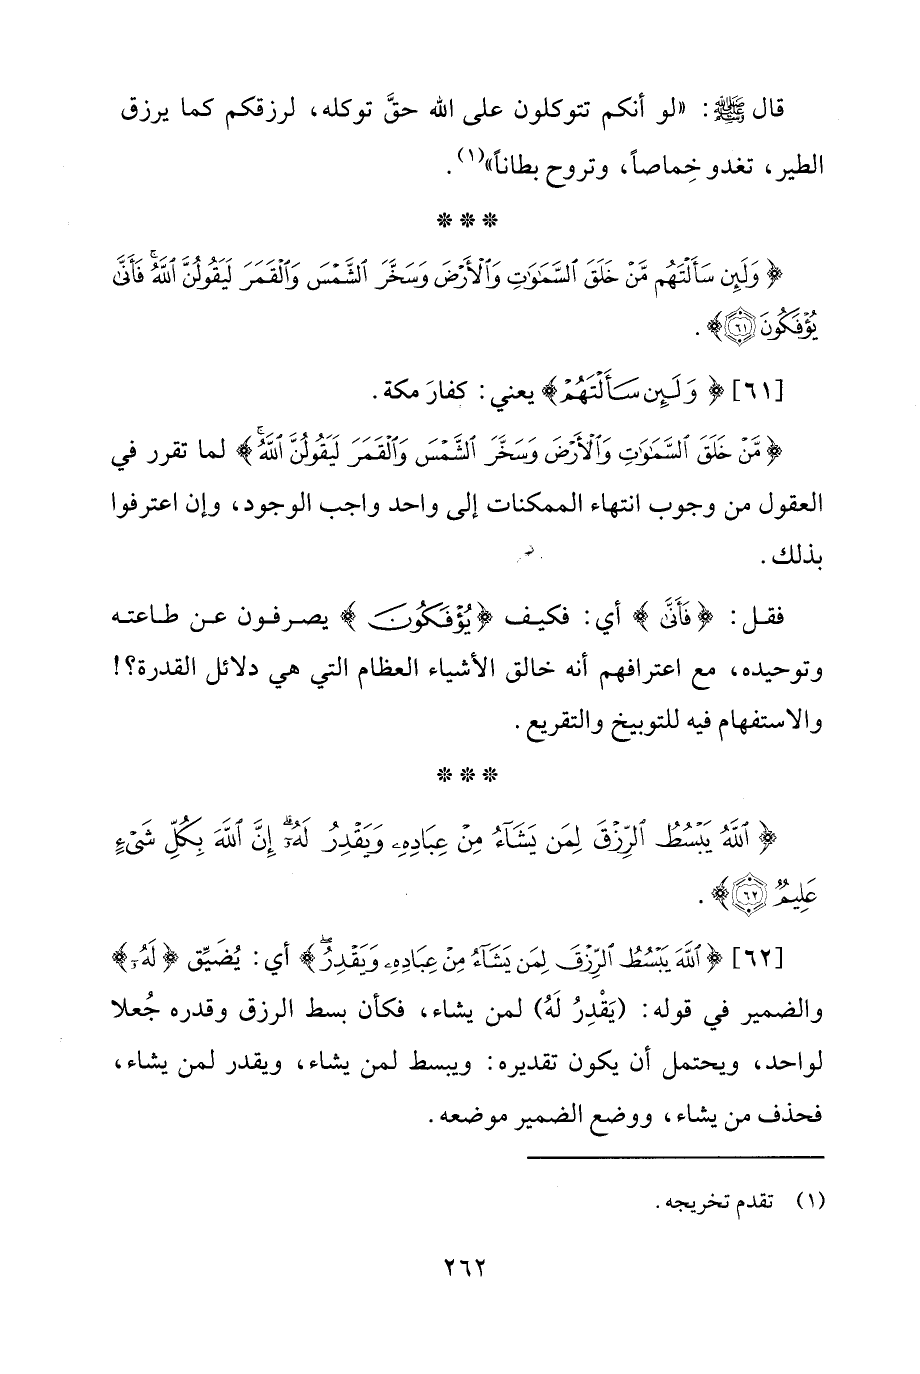 قال ﷺ: «لو أنكم تتوكلون على الله حقَّ توكله، لرزقكم كما يرزق
الطير، تغدو خِماصاً، وتروح بطاناً»(١).
* * *
﴿ وَلَئِن سَأَلْتَهُم مَّنْ خَلَقَ ٱلسَّمَٰوَٰتِ وَٱلْأَرْضَ وَسَخَّرَ ٱلشَّمْسَ وَٱلْقَمَرَ لَيَقُولُنَّ ٱللَّهُ ۖ فَأَنَّىٰ
يُؤْفَكُونَ ٦١﴾.
[٦١] ﴿ وَلَئِن سَأَلْتَهُمْ﴾ يعني: كفارَ مكة.
﴿ مَّنْ خَلَقَ ٱلسَّمَٰوَٰتِ وَٱلْأَرْضَ وَسَخَّرَ ٱلشَّمْسَ وَٱلْقَمَرَ لَيَقُولُنَّ ٱللَّهُ ۚ ﴾ لما تقرر في
العقول من وجوب انتهاء الممكنات إلى واحد واجب الوجود، وإن اعترفوا
بذلك.
فقل: ﴿ فَأَنَّىٰ ﴾ أي: فكيف ﴿يُؤْفَكُونَ ﴾ يصرفون عن طاعته
وتوحيده، مع اعترافهم أنه خالق الأشياء العظام التي هي دلائل القدرة؟!
والاستفهام فيه للتوبيخ والتقريع.
* * *
﴿ ٱللَّهُ يَبْسُطُ ٱلرِّزْقَ لِمَن يَشَآءُ مِنْ عِبَادِهِۦ وَيَقْدِرُ لَهُۥٓ ۚ إِنَّ ٱللَّهَ بِكُلِّ شَىْءٍ
عَلِيمٌ ٦٢﴾.
[٦٢] ﴿ ٱللَّهُ يَبْسُطُ ٱلرِّزْقَ لِمَن يَشَآءُ مِنْ عِبَادِهِۦ وَيَقْدِرُ ۖ ﴾ أي: يُضَيِّق ﴿ لَهُۥٓ ﴾
والضمير في قوله: (يَقْدِرُ لَهُ) لمن يشاء، فكأن بسط الرزق وقدره جُعلا
لواحد، ويحتمل أن يكون تقديره: ويبسط لمن يشاء، ويقدر لمن يشاء،
فحذف من يشاء، ووضع الضمير موضعه.
(١) تقدم تخريجه.
٢٦٢